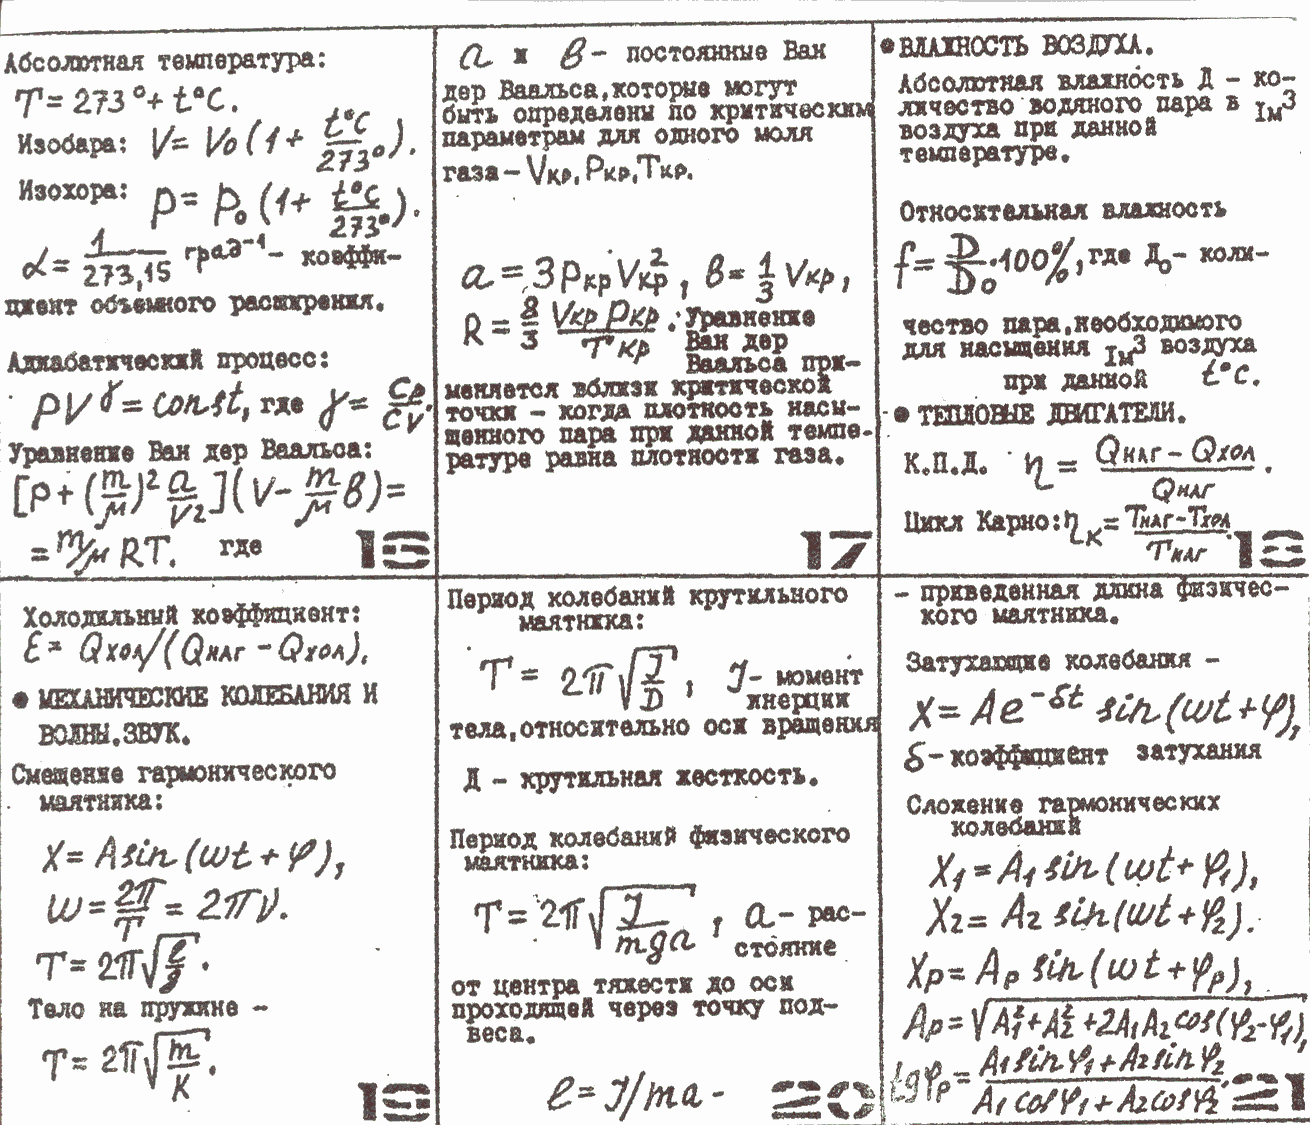 Абсолютная температура:
T = 273° + t°C.
Изобара: V = V₀(1 + t°C/273°).
Изохора: p = p₀(1 + t°C/273°).
α = 1/273,15 град⁻¹ - коэффи-
циент объемного расширения.
Адиабатический процесс:
pV^γ = const, где γ = Cp/Cv.
Уравнение Ван дер Ваальса:
[p + (m/μ)² a/V²](V - m/μ в) =
= m/μ RT. где
16
a и в - постоянные Ван
дер Ваальса, которые могут
быть определены по критическим
параметрам для одного моля
газа - Vкр, Pкр, Tкр.
a = 3pкр Vкр², в = 1/3 Vкр,
R = 8/3 Vкр Pкр/Tкр. Уравнение
Ван дер
Ваальса при-
меняется вблизи критической
точки - когда плотность насы-
щенного пара при данной темпе-
ратуре равна плотности газа.
17
● ВЛАЖНОСТЬ ВОЗДУХА.
Абсолютная влажность Д - ко-
личество водяного пара в Iм³
воздуха при данной
температуре.
Относительная влажность
f = D/D₀ · 100%, где Д₀ - коли-
чество пара, необходимого
для насыщения Iм³ воздуха
при данной t°C.
● ТЕПЛОВЫЕ ДВИГАТЕЛИ.
К.П.Д. η = Qнаг - Qхол/Qнаг.
Цикл Карно: ηк = Tнаг - Tхол/Tнаг.
18
Холодильный коэффициент:
ε = Qхол/(Qнаг - Qхол).
● МЕХАНИЧЕСКИЕ КОЛЕБАНИЯ И
ВОЛНЫ. ЗВУК.
Смещение гармонического
маятника:
X = A sin(ωt + φ),
ω = 2π/T = 2πν.
T = 2π√(ℓ/g).
Тело на пружине -
T = 2π√(m/K).
19
Период колебаний крутильного
маятника:
T = 2π√(J/D), J - момент
инерции
тела, относительно оси вращения
Д - крутильная жесткость.
Период колебаний физического
маятника:
T = 2π√(J/mga), a - рас-
стояние
от центра тяжести до оси
проходящей через точку под-
веса.
ℓ = J/ma -
20
- приведенная длина физичес-
кого маятника.
Затухающие колебания -
X = Ae^(-δt) sin(ωt + φ),
δ - коэффициент затухания
Сложение гармонических
колебаний
X₁ = A₁ sin(ωt + φ₁),
X₂ = A₂ sin(ωt + φ₂).
Xp = Ap sin(ωt + φp),
Ap = √(A₁² + A₂² + 2A₁A₂ cos(φ₂ - φ₁)),
tgφp = A₁ sinφ₁ + A₂ sinφ₂/A₁ cosφ₁ + A₂ cosφ₂.
21